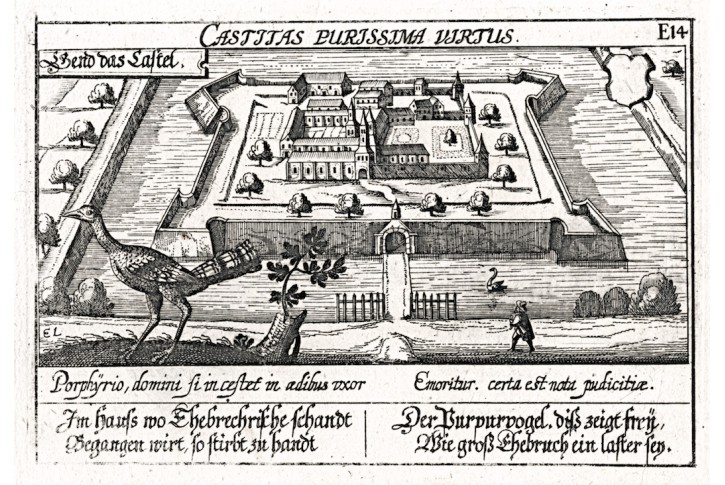 CASTITAS PURISSIMA VIRTUS.
E14
Gend das Castel.
EL
Porphÿrio, domini si incestet in ædibus vxor
Emoritur. certa est nota pudicitiæ.
Im Hauss wo Ehebrechrische schandt
Begangen wirt, so stirbt zu handt
Der Purpurvogel. diß zeigt freÿ,
Wie groß Ehebruch ein laster seÿ.